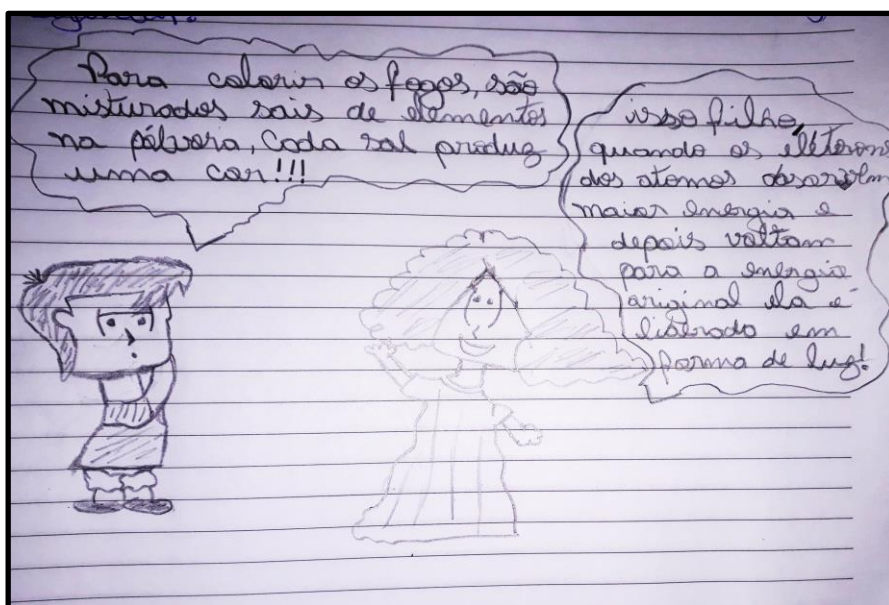 Para colorir os fogos, são
misturados sais de elementos
na pólvora, Cada sal produz
uma cor!!!
isso filho,
quando os elétrons
dos atomos absorvem
maior energia e
depois voltam
para a energia
original ela é
liberada em
forma de luz!